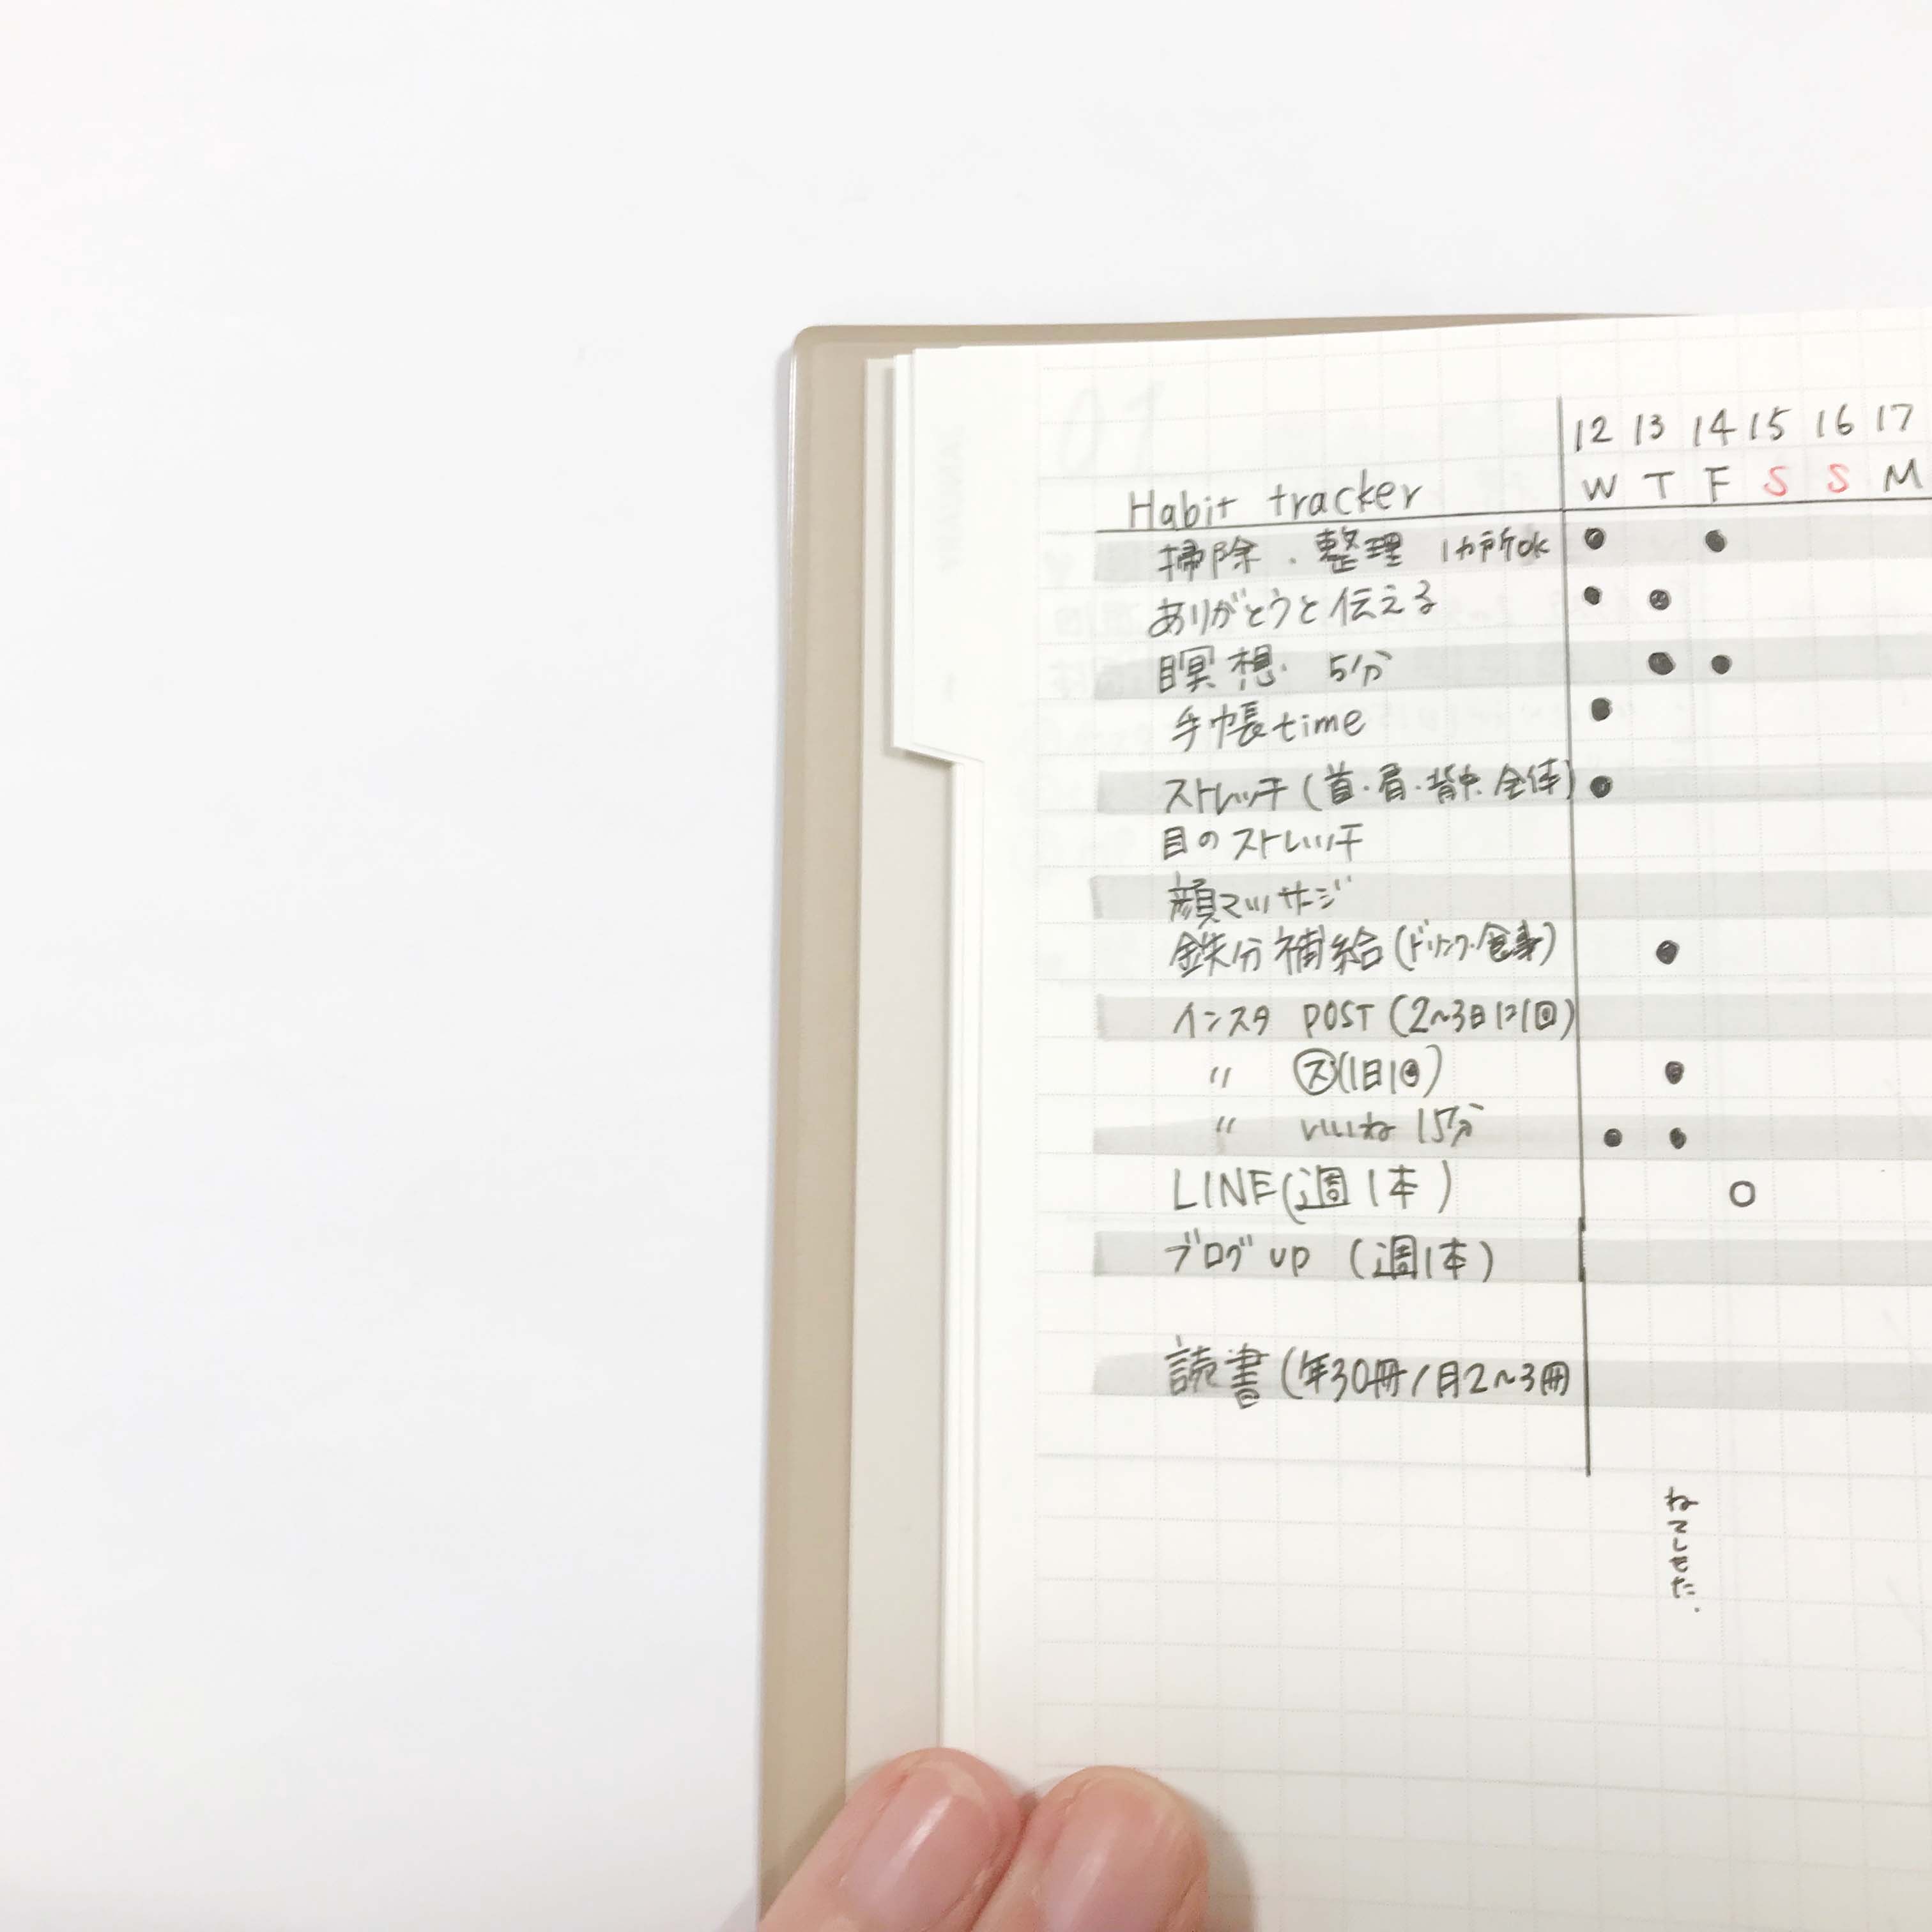 12 13 14 15 16 17
Habit tracker W T F S S M
掃除・整理 1カ所OK
ありがとうと伝える
瞑想 5分
手帳time
ストレッチ(首・肩・背中・全体)
目のストレッチ
顔マッサージ
鉄分補給(ドリンク・食事)
インスタ POST(2~3日に1回)
〃 ㋜(1日1回)
〃 いいね 15分
LINE(週1本)
ブログup (週1本)
読書(年30冊/月2~3冊